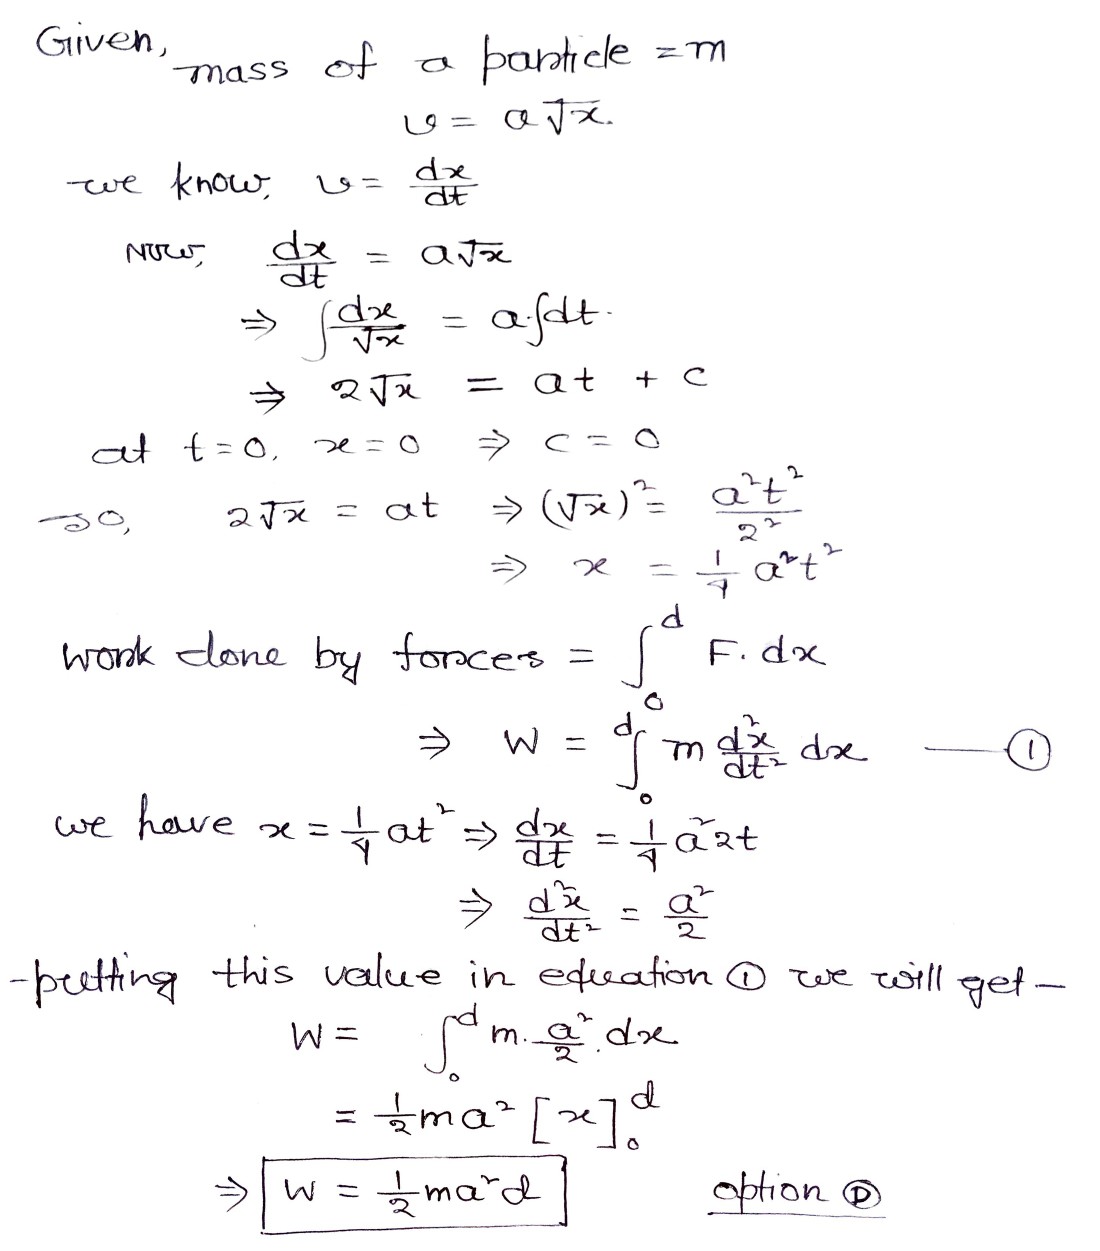 Given,
mass of a particle = m
v = a√x.
we know, v = dx/dt
Now, dx/dt = a√x
⇒ ∫dx/√x = a.∫dt.
⇒ 2√x = at + c
at t=0, x=0 ⇒ c = 0
so, 2√x = at ⇒ (√x)² = a²t²/2²
⇒ x = 1/4 a²t²
work done by forces = ∫₀ᵈ F. dx
⇒ W = ∫₀ᵈ m d²x/dt² dx —— ①
we have x = 1/4 at² ⇒ dx/dt = 1/4 a²2t
⇒ d²x/dt² = a²/2
-putting this value in equation ① we will get —
W = ∫₀ᵈ m. a²/2 . dx
= 1/2 ma² [x]₀ᵈ
⇒ W = 1/2 ma²d option Ⓓ